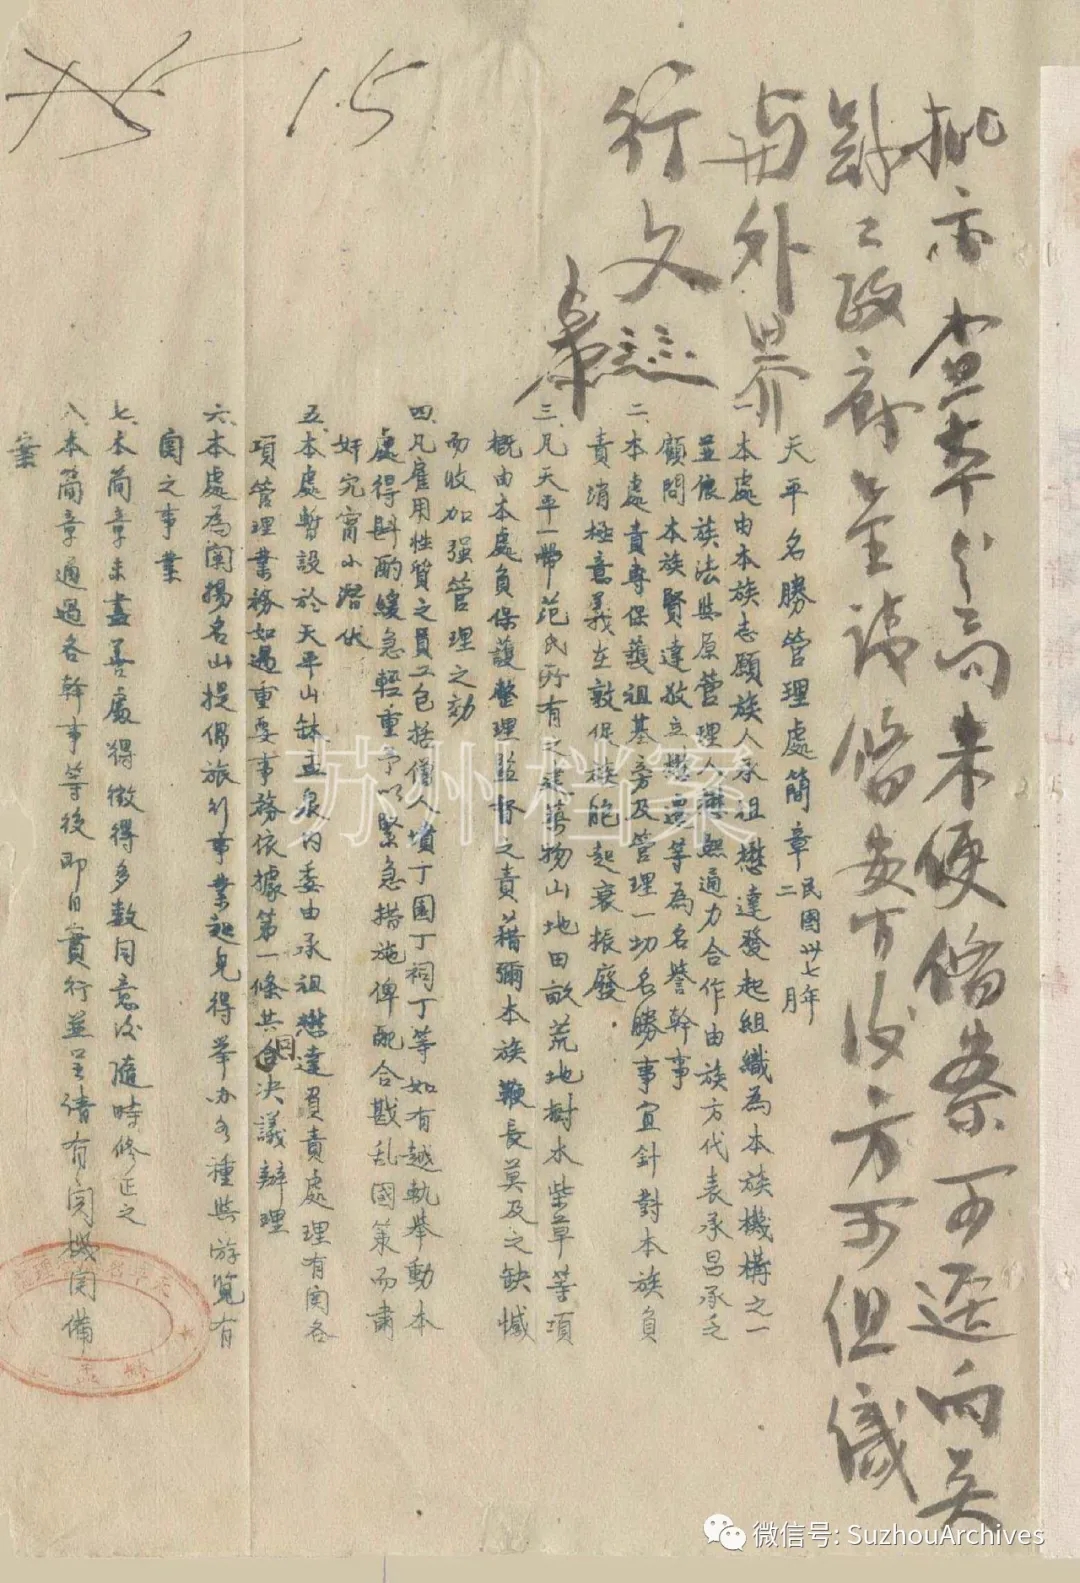 批示 查本分局未便俻案可逕向吴
縣縣政府呈請俻案
後方可但
與外界
行文
75 15
天平名勝管理處簡章 民國卅七年二月
一、本處由本族志願族人承祖懋達發起組織為本族機構之一
並依族法與原管理人懋熙通力合作由族方代表承昌承乏
顧問本族賢達敉立懋還等為名譽幹事
二、本處責專保護祖基旁及管理一切名勝事宜針對本族負
責消極意義在敦保族能起衰振廢
三、凡天平一帶范民所有之建築物山地田畝荒地樹木柴草等項
概由本處負保護整理監督之責藉彌本族鞭長莫及之缺憾
而收加强管理之効
四、凡雇用性質之員工包括僧人墳丁園丁祠丁等如有越軌舉動本
處得斟酌緩急輕重予以緊急措施俾配合戡乱國策而肅
奸宄宵小潛伏
五、本處暫設於天平山鉢盂泉内委由承祖懋達負責處理有関各
項管理業務如遇重要事務依據第一條共同決議辦理
六、本處為闡揚名山提倡旅行事業起見得举办各種與游覧有
関之事業
七、本簡章未盡善處得徵得多数同意後隨時修正之
八、本簡章通過各幹事等後即日實行並呈請有関機関備
案
苏州档案
微信号: SuzhouArchives